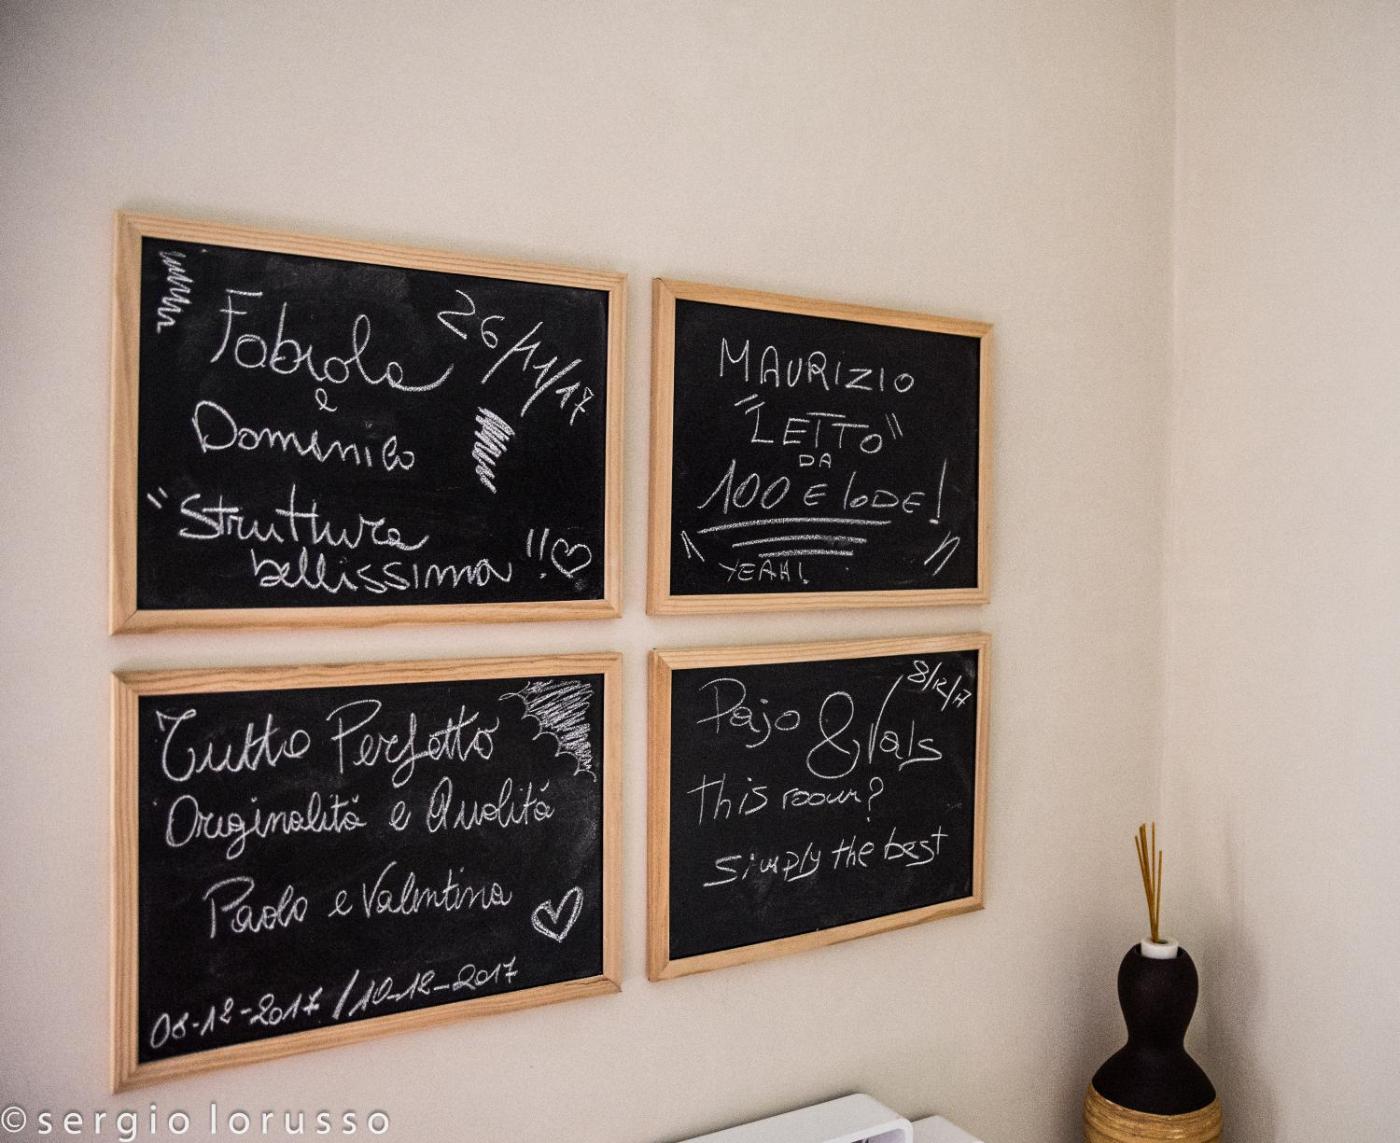 Fabiola
26/11/17
e
Domenico
"Struttura
bellissima"!!
MAURIZIO
"LETTO"
DA
100 E lODE!
YEAH!
Tutto Perfetto
Originalità e Qualità
Paolo e Valentina
08-12-2017/10-12-2017
8/12/17
Pajo & Vals
this room?
simply the best
© sergio lorusso